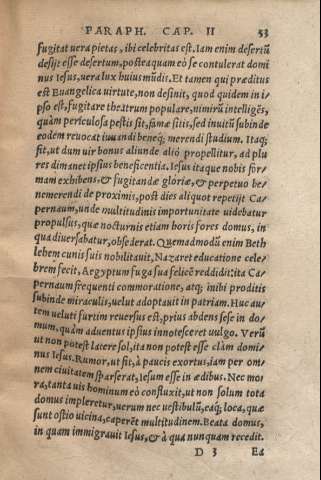 PARAPH. CAP. II 53
fugitat uera pietas, ibi celebritas est. Iam enim desertũ
desijt esse desertum, posteaquam eò se contulerat domi
nus Iesus, uera lux huius mũdi. Et tamen qui præditus
est Euangelica uirtute, non desinit, quod quidem in i-
pso est, fugitare theatrum populare, nimirũ intelligẽs,
quàm periculosa pestis sit, famæ sitis, sed inuitũ subinde
eodem reuocat iuuandi beneq; merendi studium. Itaq;
fit, ut dum uir bonus aliunde aliò propellitur, ad plu
res dimanet ipsius beneficentia. Iesus itaque nobis for-
mam exhibens, & fugitandæ gloriæ, & perpetuo be-
nemerendi de proximis, post dies aliquot repetijt Ca-
pernaum, unde multitudinis importunitate uidebatur
propulsus, quæ nocturnis etiam horis fores domus, in
qua diuersabatur, obsederat. Quemadmodũ enim Beth
lehem cunis suis nobilitauit, Nazaret educatione cele-
brem fecit, Aegyptum fuga sua felicẽ reddidit: ita Ca-
pernaum frequenti commoratione, atq; inibi proditis
subinde miraculis, uelut adoptauit in patriam. Huc au-
tem ueluti furtim reuersus est, prius abdens sese in do-
mum, quàm aduentus ipsius innotesceret uulgo. Verũ
ut non potest latere sol, ita non potest esse clàm domi-
nus Iesus. Rumor, ut fit, à paucis exortus, iam per om-
nem ciuitatem sparserat, Iesum esse in ædibus. Nec mo
ra, tanta uis hominum eò confluxit, ut non solum tota
domus impleretur, uerum nec uestibulũ, eaq; loca, quæ
sunt ostio uicina, caperẽt multitudinem. Beata domus,
in quam immigrauit Iesus, & à qua nunquam recedit.
D 3 Ea